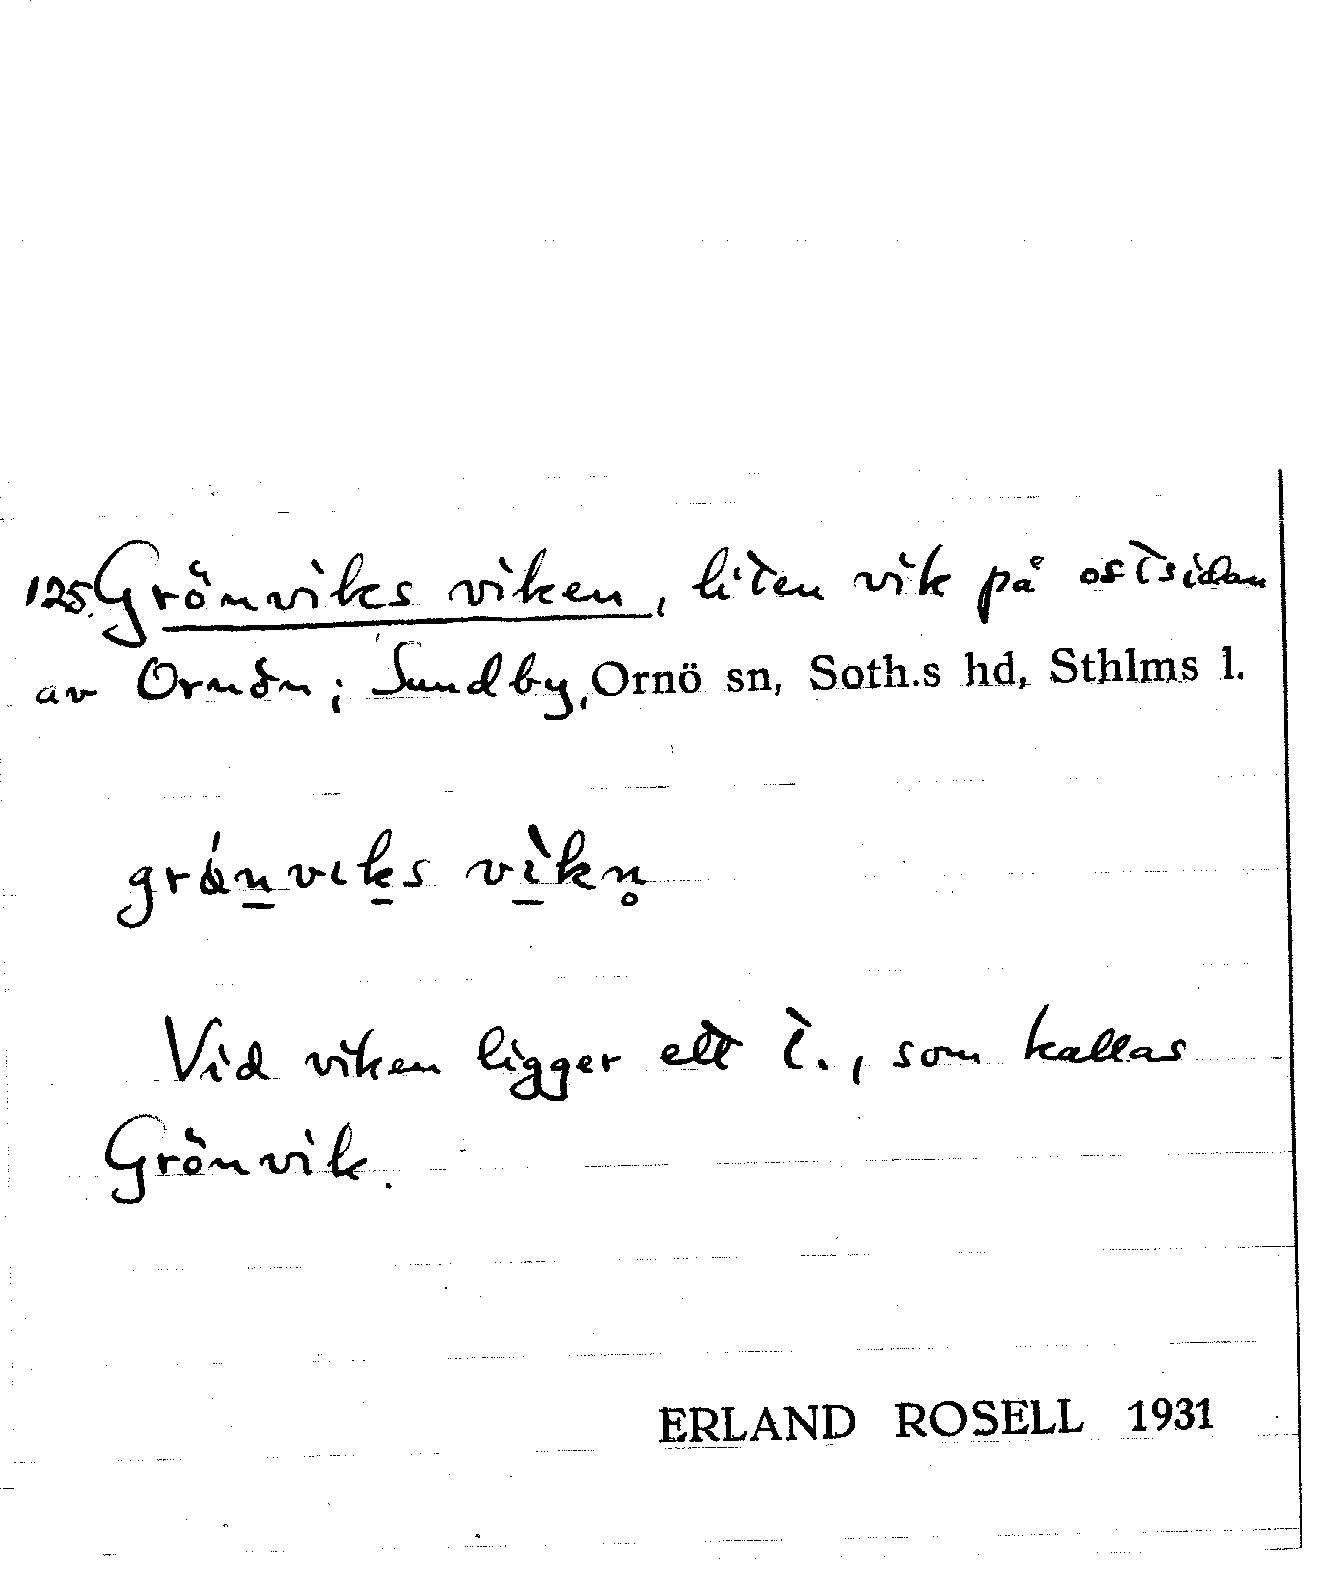 125. Grönviks viken, liten vik på ostsidan
av Ornön; Sundby, Ornö sn, Soth.s hd, Sthlms l.
grǿn̲vik̲s vì̲kn̥
Vid viken ligger ett t., som kallas
Grönvik.
ERLAND ROSELL 1931